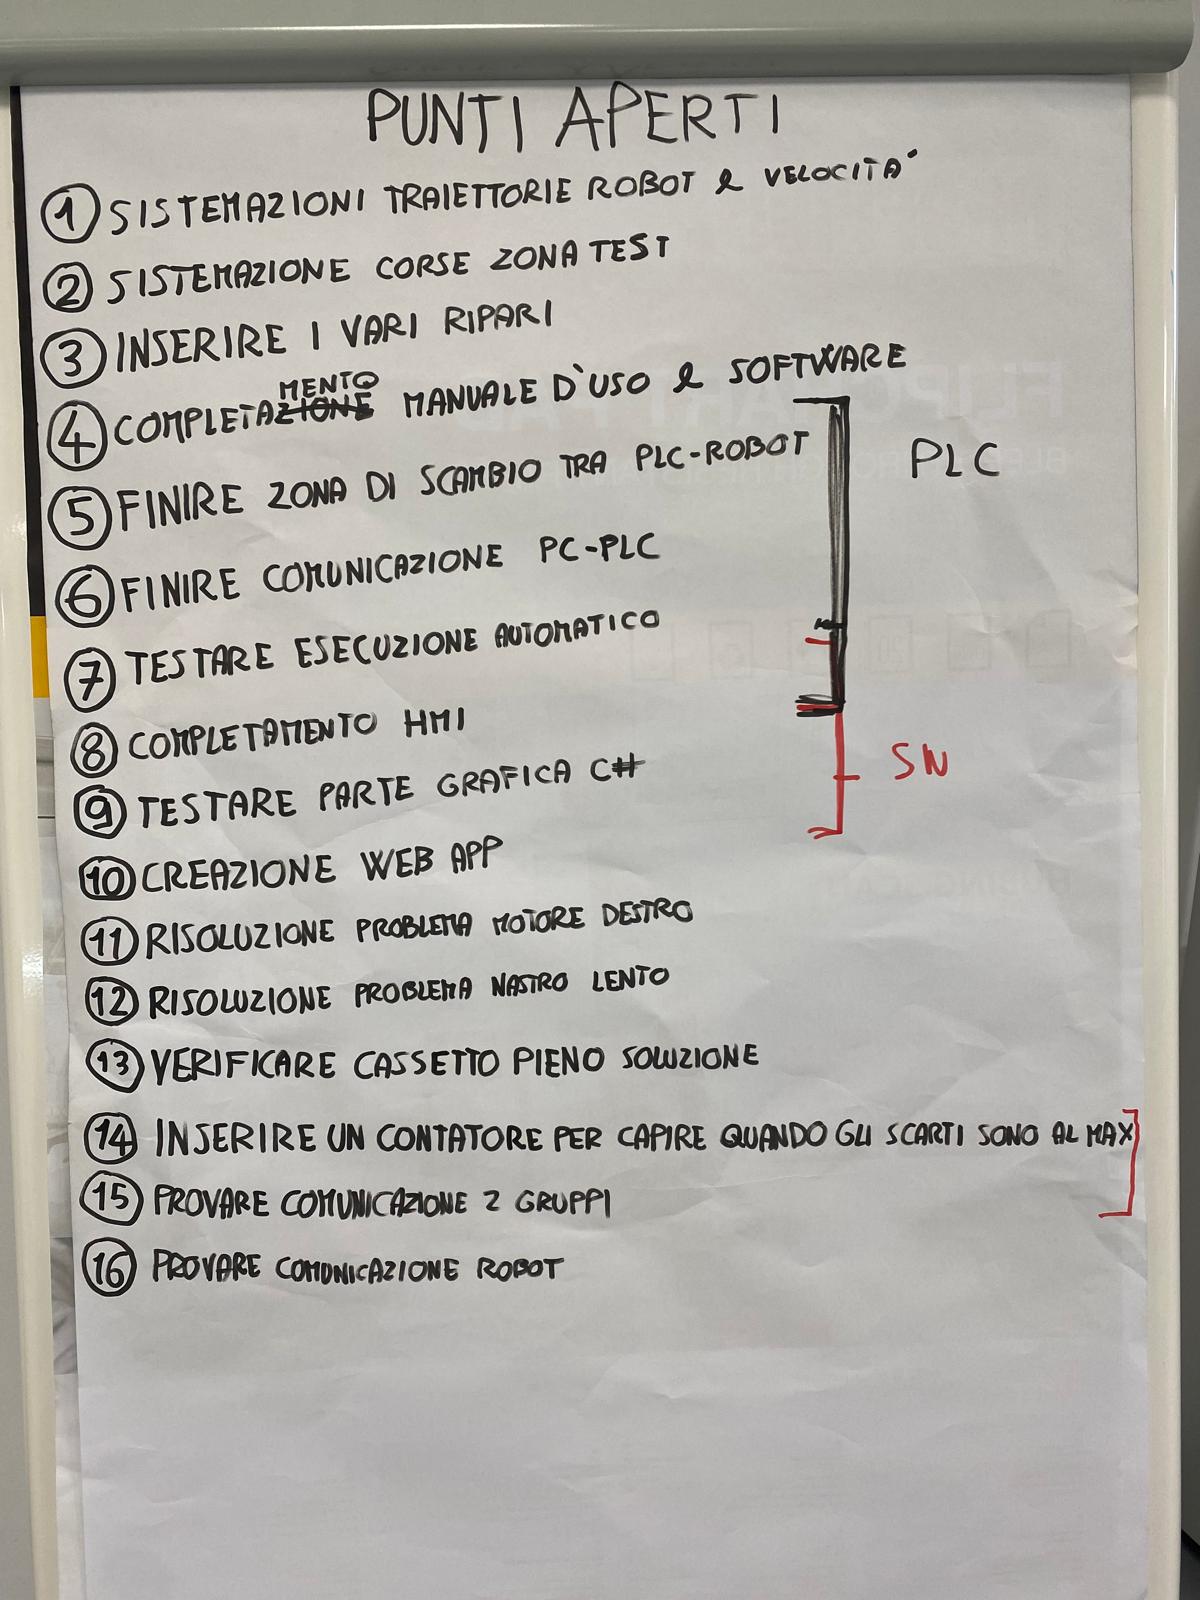 PUNTI APERTI
1 SISTEMAZIONI TRAIETTORIE ROBOT e VELOCITA'
2 SISTEMAZIONE CORSE ZONA TEST
3 INSERIRE I VARI RIPARI
4 COMPLETAMENTO MANUALE D'USO e SOFTWARE
5 FINIRE ZONA DI SCAMBIO TRA PLC-ROBOT
PLC
6 FINIRE COMUNICAZIONE PC-PLC
7 TESTARE ESECUZIONE AUTOMATICO
8 COMPLETAMENTO HMI
SW
9 TESTARE PARTE GRAFICA C#
10 CREAZIONE WEB APP
11 RISOLUZIONE PROBLEMA MOTORE DESTRO
12 RISOLUZIONE PROBLEMA NASTRO LENTO
13 VERIFICARE CASSETTO PIENO SOLUZIONE
14 INSERIRE UN CONTATORE PER CAPIRE QUANDO GLI SCARTI SONO AL MAX
15 PROVARE COMUNICAZIONE 2 GRUPPI
16 PROVARE COMUNICAZIONE ROBOT